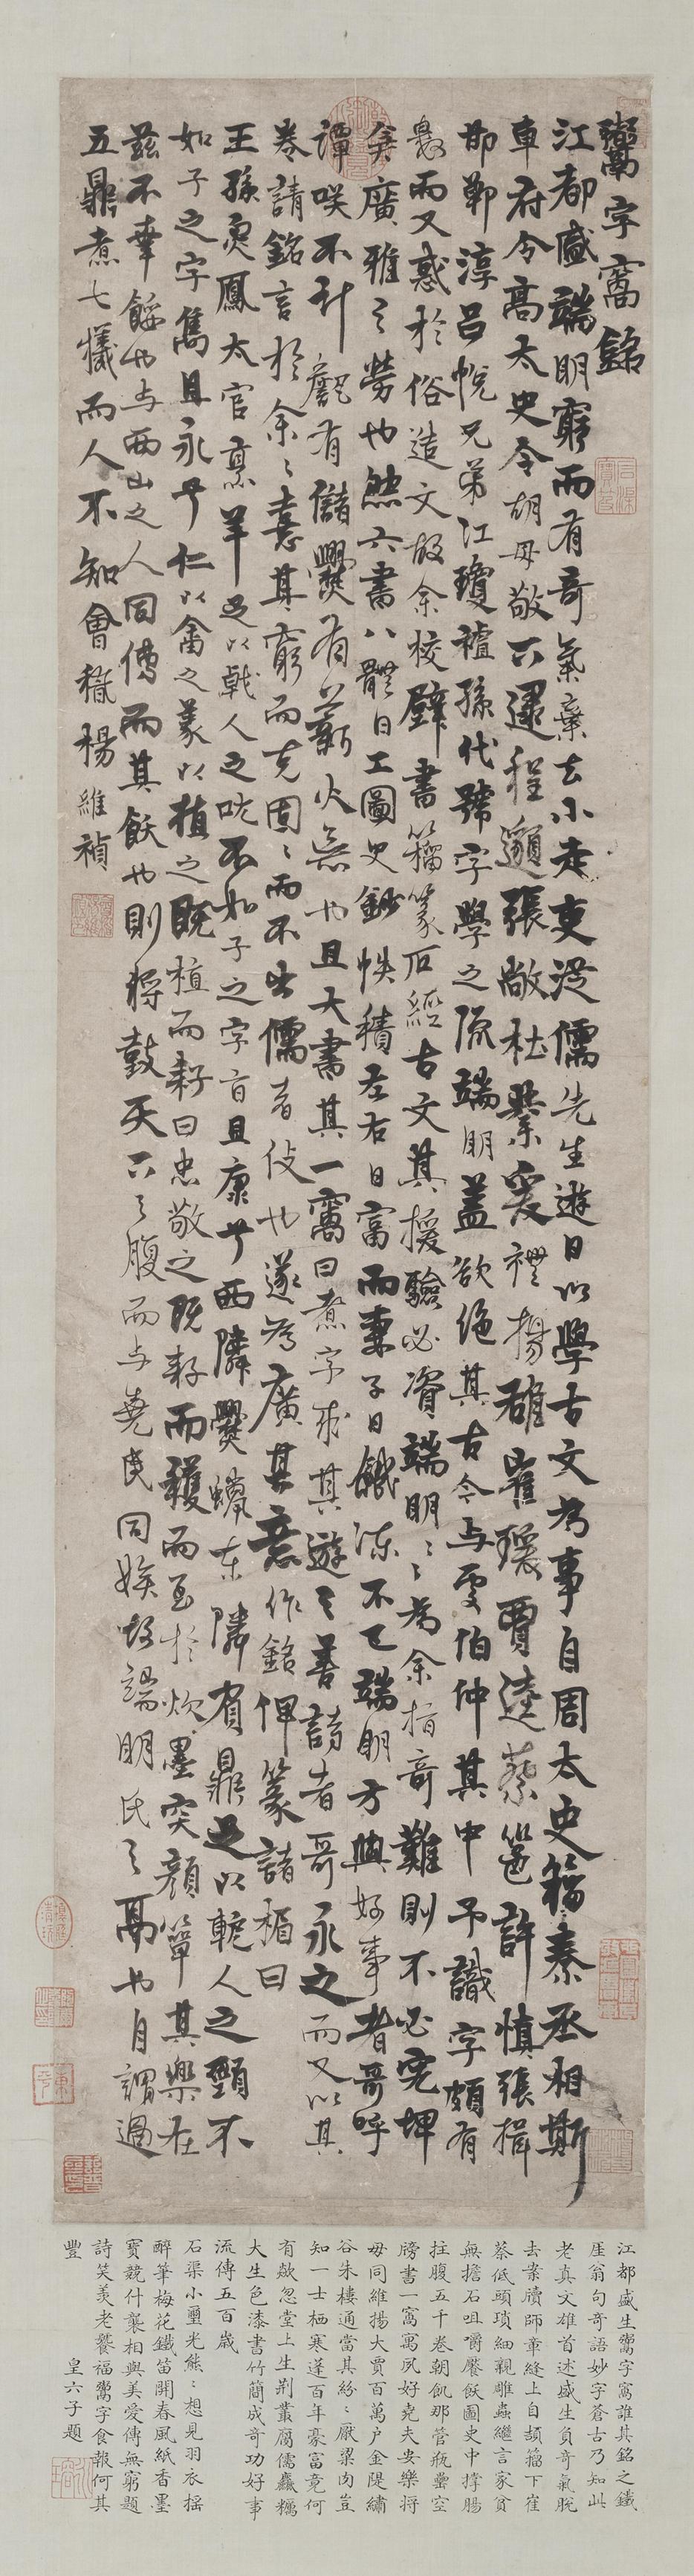 鬻字窩銘
江都盛端明窮而有奇氣棄去小走吏從儒先生遊日以學古文為事自周太史籀秦丞相斯
車府令高太史令胡毋敬下逮程邈張敞杜業爰禮揚雄崔瑗賈逵蔡邕許慎張揖
邯鄲淳呂忱兄弟江瓊襢孫代號字學之流端明蓋欲絶其古今与雯伯仲其中予識字頗有
患而又惑於俗造文故余校壁書籀篆石經古文其援驗必資端明〻為余指奇難則不必究埤
倉廣雅之勞也然六書八體日工圖史鈔帙積左右日富而妻子日餓凍不已端明方與好事者哥呼
譚咲不計甔有儲爨有薪火否也且大書其一窩曰煮字求其遊之善詩者哥永之而又以其
卷請銘言於余〻憙其窮而克固〻而不出儒者伎也遂為廣其意作銘俾篆諸楣曰
王孫炙鳳太官烹羊足以戟人之吭不如子之字旨且康兮西隣爨蠟東隣負鼎足以軛人之頸不
如子之字雋且永兮仁以畬之義以植之既植而耔曰忠敬之既耔而穫而至於炊墨突顏簞其樂在
兹不幸餒也与西山之人同傳而其飫也則將鼓天下之腹而与堯民同娭故端明氏之鬲也自謂過
五鼎煮七犧而人不知會稽楊維禎
江都盛生鬻字窩誰其銘之鐵
厓翁句奇語妙字蒼古乃知此
老真文雄首述盛生負奇氣脫
去案牘師章縫上自頡籀下崔
蔡低頭瑣細親雕蟲繼言家貧
無擔石咀嚼饜飫圖史中撐腸
拄腹五千卷朝飢那管瓶罍空
牓書一窩寓夙好堯夫安樂將
毋同維揚大賈百萬户金隄繡
谷朱樓通當其紛〻厭粱肉豈
知一士栖寒蓬百年豪富竟何
有歘忽堂上生荆叢腐儒麤糲
大生色漆書竹簡成奇功好事
流傳五百歲
石渠小璽光熊〻想見羽衣揺
醉筆梅花鐵笛開春風紙香墨
寶競什襲相與美愛傳無窮題
詩笑羨老饕福鬻字食報何其
豐　皇六子題